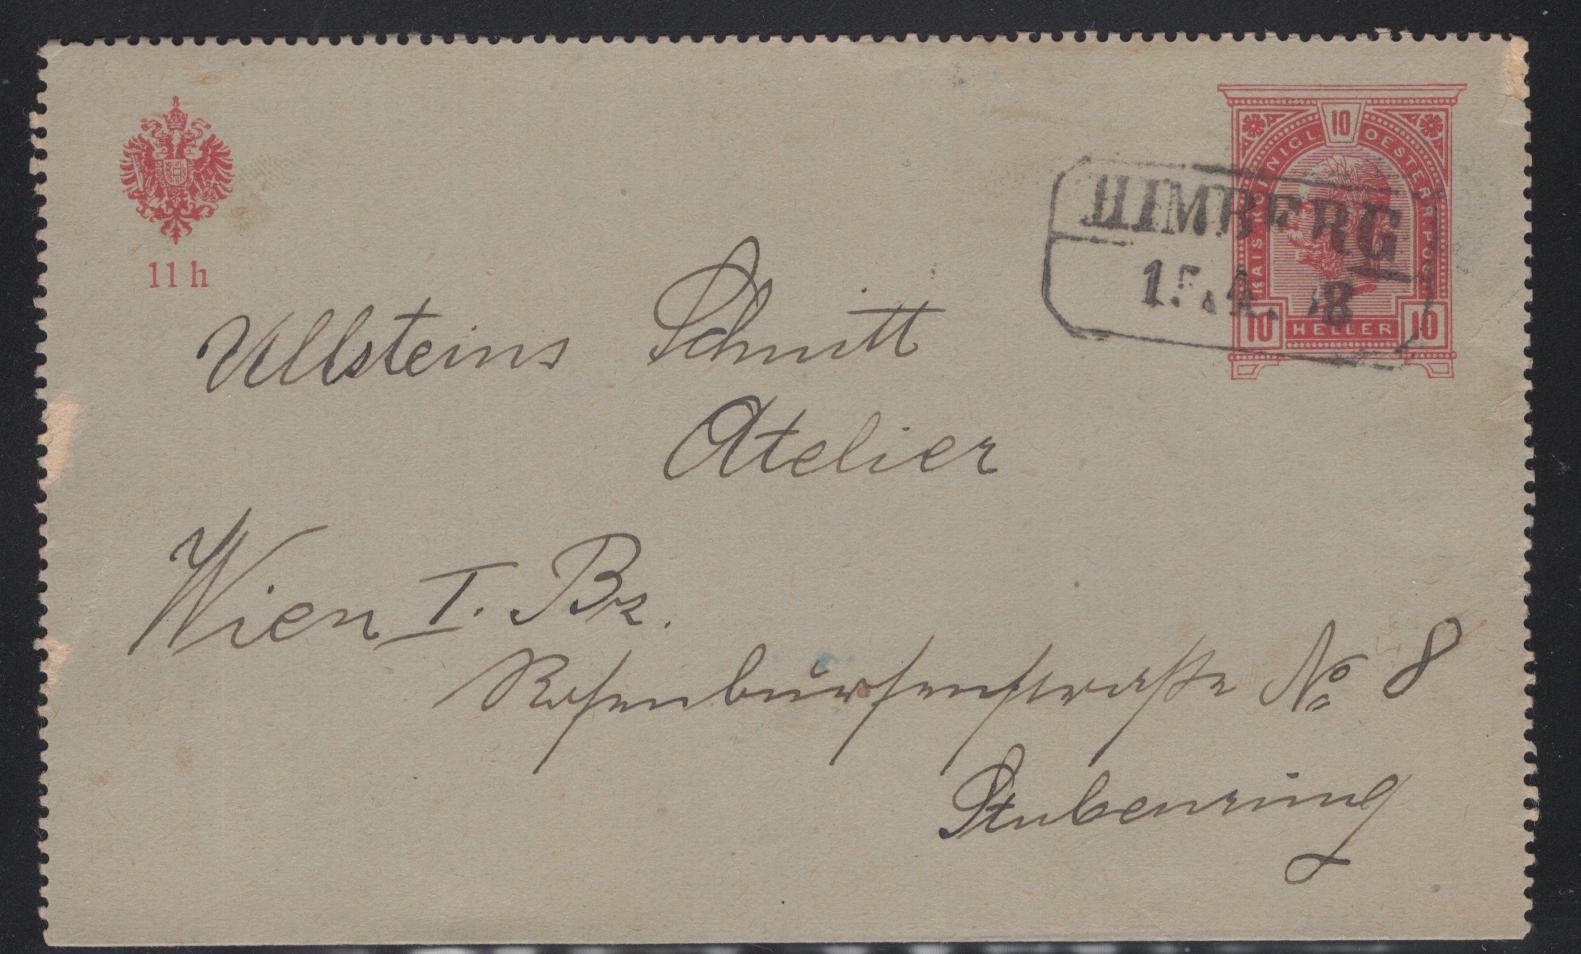 10
KAIS. KÖNIGL. OESTERR. POST
HIMBERG
15.4. 8
10 HELLER 10
11 h
Ullsteins Schnitt
Atelier
Wien I. Bz.
Rosenbursenstraße No 8
Stubenring